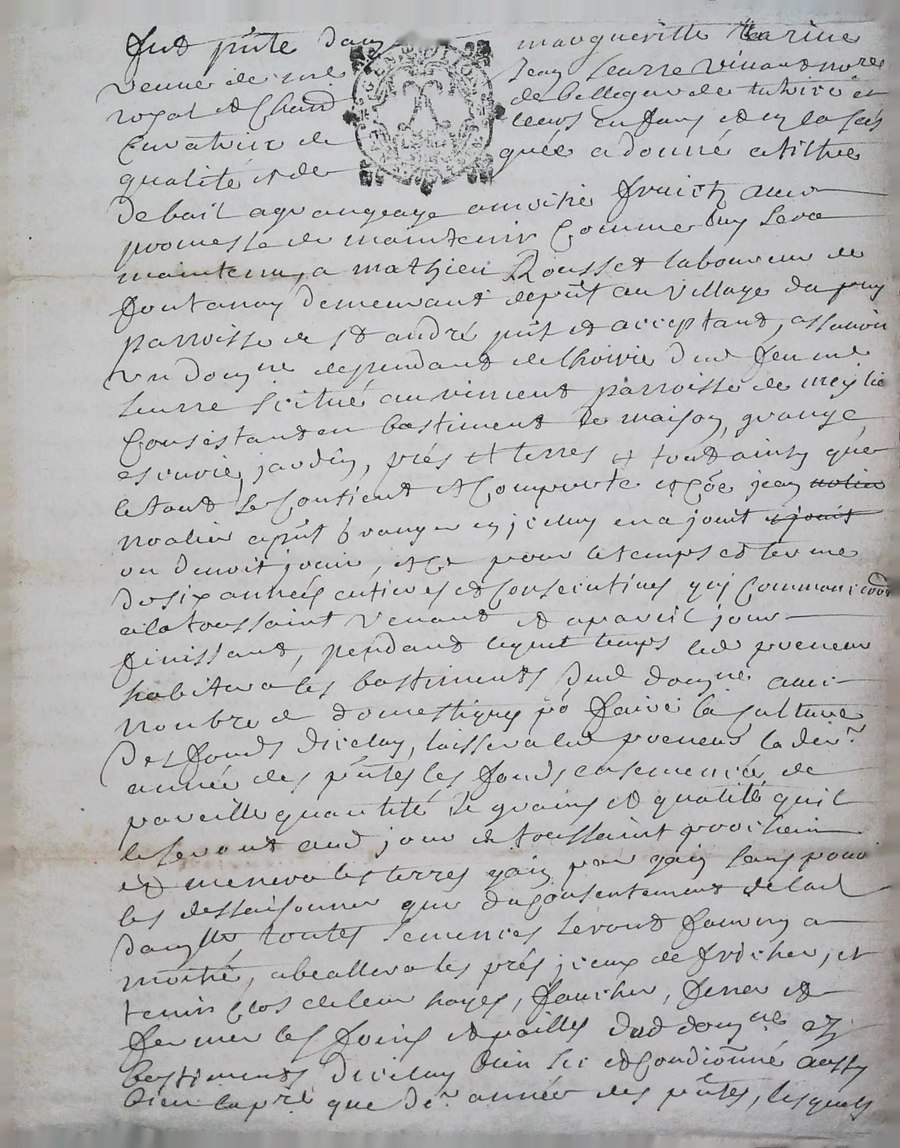 fut pnte dam margueritte
veuve de me Jean Leurre vivant nore
royal et Chard de bellegarde tutrice et
Curatrice de leurs enfans et en la ditte
qualité et de grée a donné a tiltre
de bail a grangeage a moitié fruictz avec
promesse de maintenir Comme luy sera
maintenu, a mathieu Rousset laboureur de
fontanay demeurant depnt au village du puy
parroisse de st andré pnt et acceptant, assavoir
un domne dependant de lhoirie dud feu me
Leurre scitué au vincent parroisse de meylie
Consistant en bastiment de maison, grange,
escurie, jardin, prés et terres et tout ainsy que
le tout se Contient et Comporte et que jean
noalier apnt granger en jceluy en a jouit
ou deu jouir, et ce pour le temps et terme
de six années entieres et Consecutives qui Commanceront
a la toussaint venant et a pareil jour
finissant, pendant lequel temps led preneur
habitera les bastiments dud domne avec
nombre de domestiques po faire la Culture
des fonds diceluy, laissera led preneur la derre
année des pntes les fonds ensemencés de
pareille quantité de grains et qualité quil
le seront aud jour de toussaint prochain
et menera les terres gain par gain sans pouvoir
les dessaisonner que du consentement de lad
damlle, toutes semences seront fournys a
moitié, abeallera les prés, jceux defricher, et
tenir clos de leur hayes, faucher, fener et
fermer les foins et pailles dud domne ez
bastiments diceluy bien sec et Conditionné aussy
bien la pre que dre année des pntes, lesquels